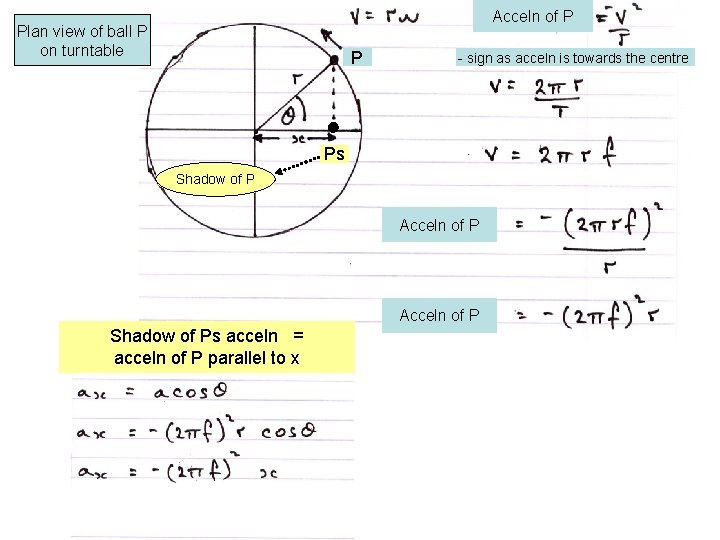 Plan view of ball P
on turntable
v = rω
Acceln of P = -v²/r
P
- sign as acceln is towards the centre
r
θ
v = 2πr/T
x
Ps
v = 2πrf
Shadow of P
Acceln of P = -(2πrf)²/r
Acceln of P = -(2πf)²r
Shadow of Ps acceln =
acceln of P parallel to x
ax = a cosθ
ax = -(2πf)²r cosθ
ax = -(2πf)² x